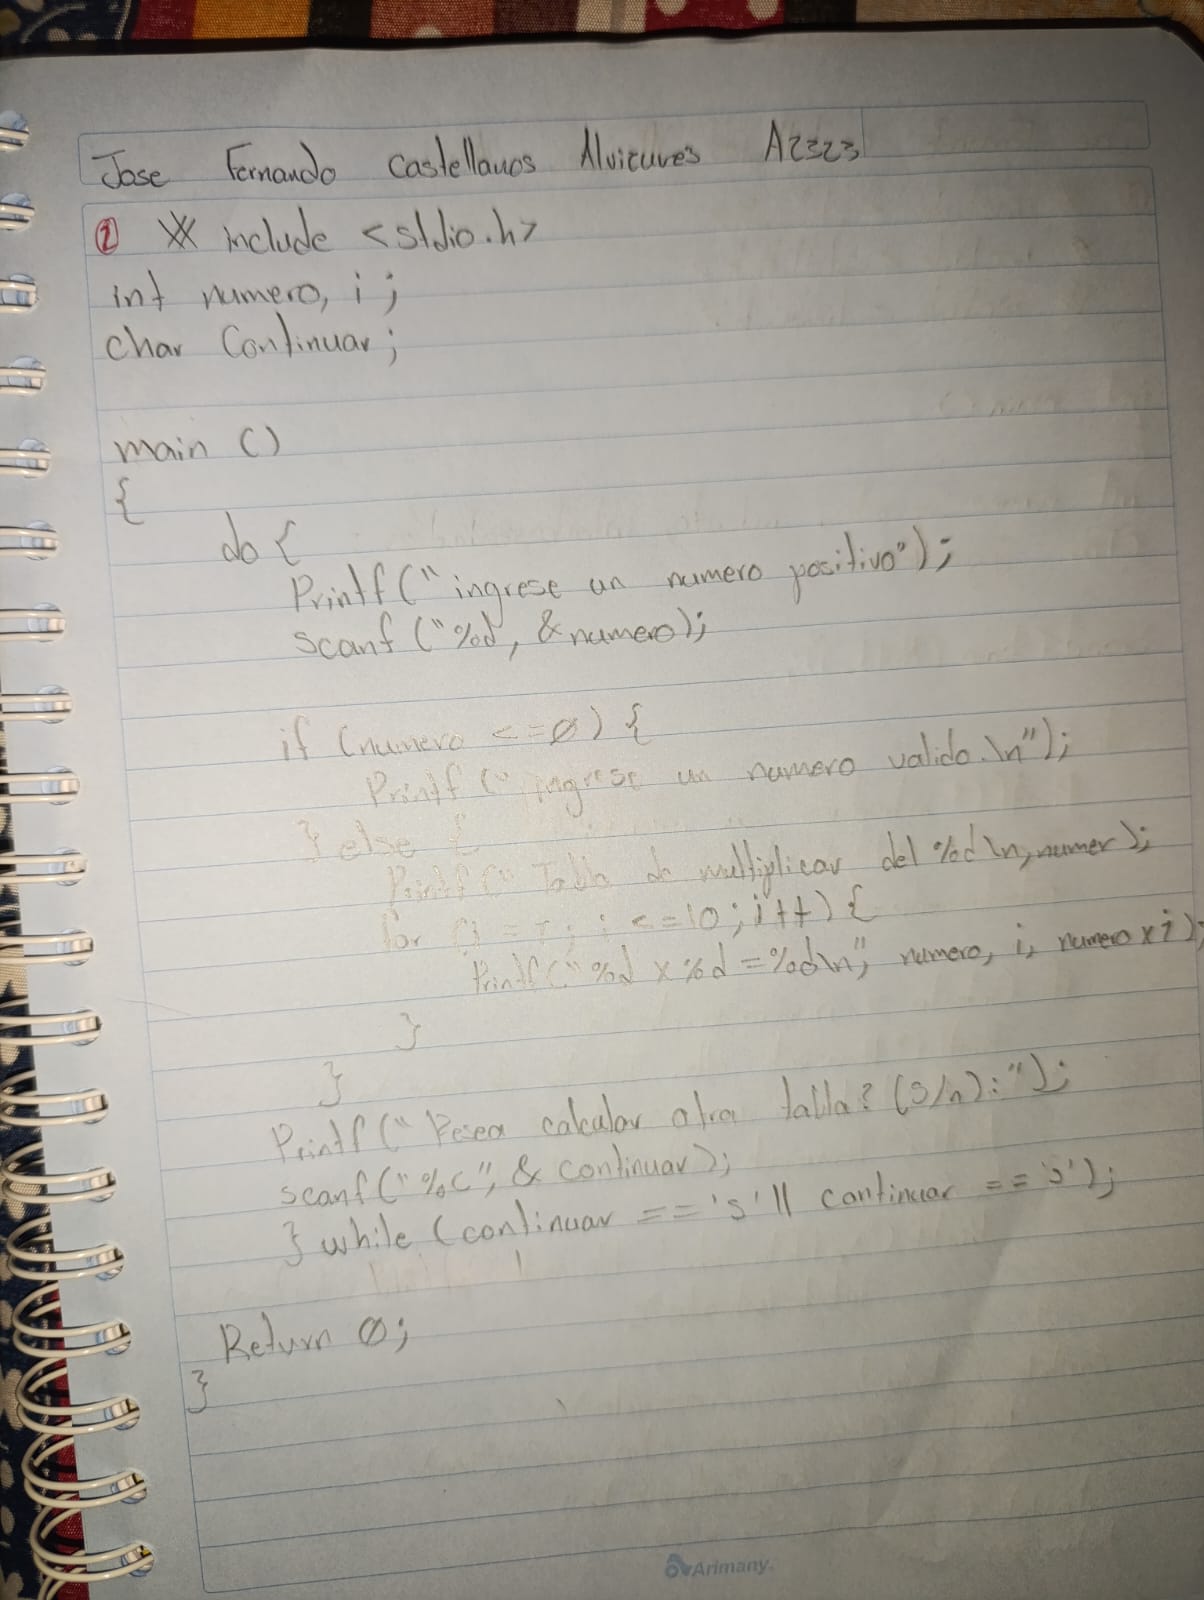 Jose Fernando Castellanos Alvizures A2323
① # include <stdio.h>
int numero, i ;
char Continuar ;
main ()
{
do {
Printf ("ingrese un numero positivo");
scanf ("%d, & numero);
if (numero <= 0) {
Printf (" ingrese un numero valido.\n");
} else {
Printf (" Tabla de multiplicar del %d \n, numer );
for (i = 1; i <= 10 ; i++) {
Printf (" %d x %d = %d\n", numero, i, numero x i );
}
}
Printf (" Desea calcular otra tabla? (s/n):");
scanf ("%c", & continuar );
} while (continuar == 's' || continuar == 's');
Return 0;
}
Arimany.